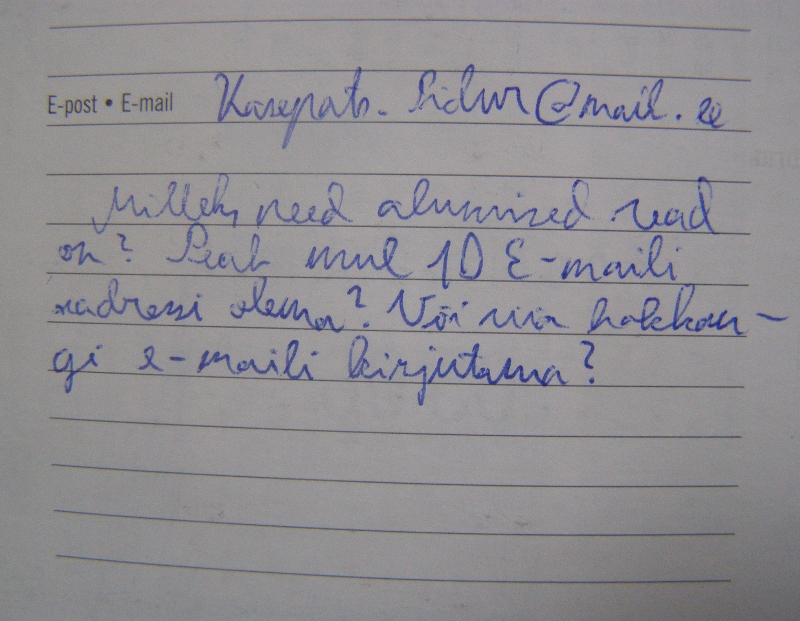 E-post • E-mail Kasepats. Sidur@mail.ee
Milleks need alumised read
on? Peab mul 10 E-maili
aadressi olema? Või ma hakkan-
gi e-maili kirjutama?